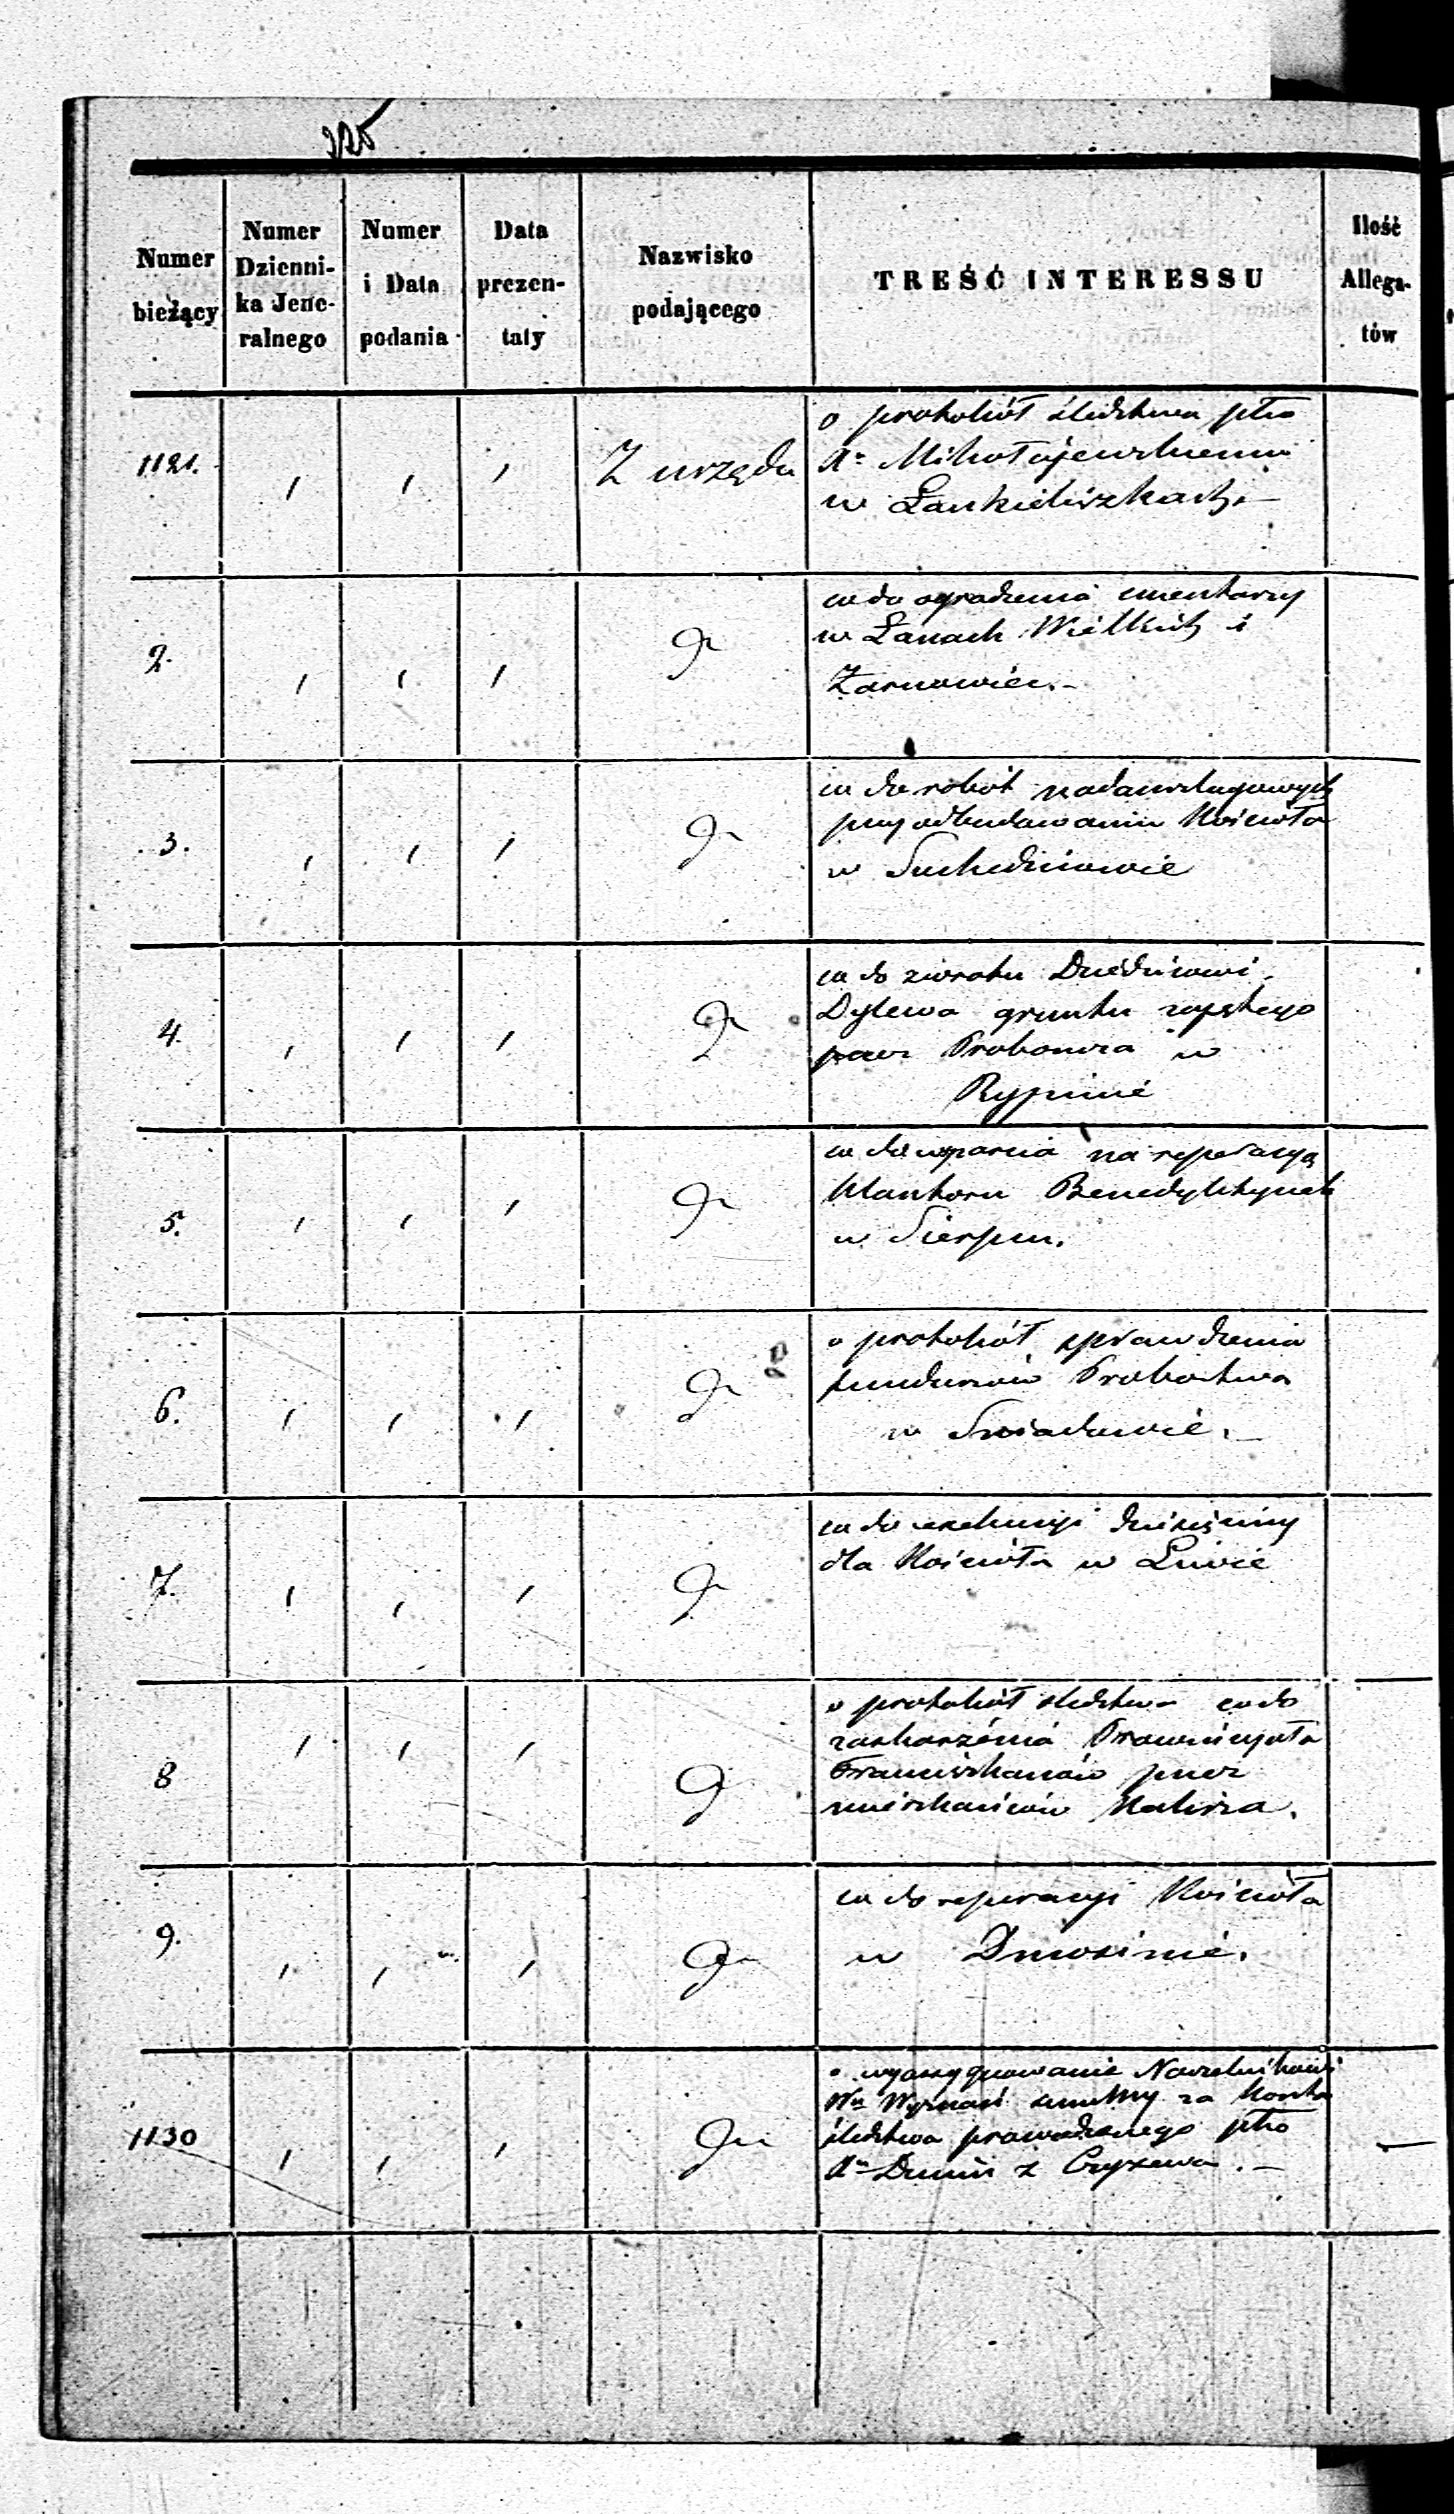 Numer bieżący
Numer Dzienni-ka Jene-ralnego
Numer i Data podania
Data prezen-taty
Nazwisko podającego
TREŚĆ INTERESSU
Ilość Allega-tów
1121.
Z urzędu
o protokół śledztwa pko
Xu Mikołajewskiemu
w Łankieliszkach. —
2.
co do ogrodzenia cmentarzy
w Łanach Wielkich i
Żarnowiec. —
3.
co do robót
przy odbudowaniu Kościoła
w Suchedniowie
4.
co do zwrotu Dziedzicowi
Dylewa gruntu
przez Proboszcza w
Rypinie
5.
co do wparcia na reperacyą
Klasztoru Benedyktynek
w Sierpcu.
6.
o protokół sprawdzenia
funduszów Probostwa
w Sniadowie. —
7.
co do exekucyi dziesięciny
dla Kościoła w Liwie
8
o protokół śledztwa co do
zaskarżenia Prowincyała
Franciszkanów przez
mieszkańców Kalisza.
9.
co do reperacyi Kościoła
w Dmosinie.
1130
o wyassygnowanie Naczelnikowi
za koszta
śledztwa prowadzonego pko
Xu Dunin z Czyżewa. —